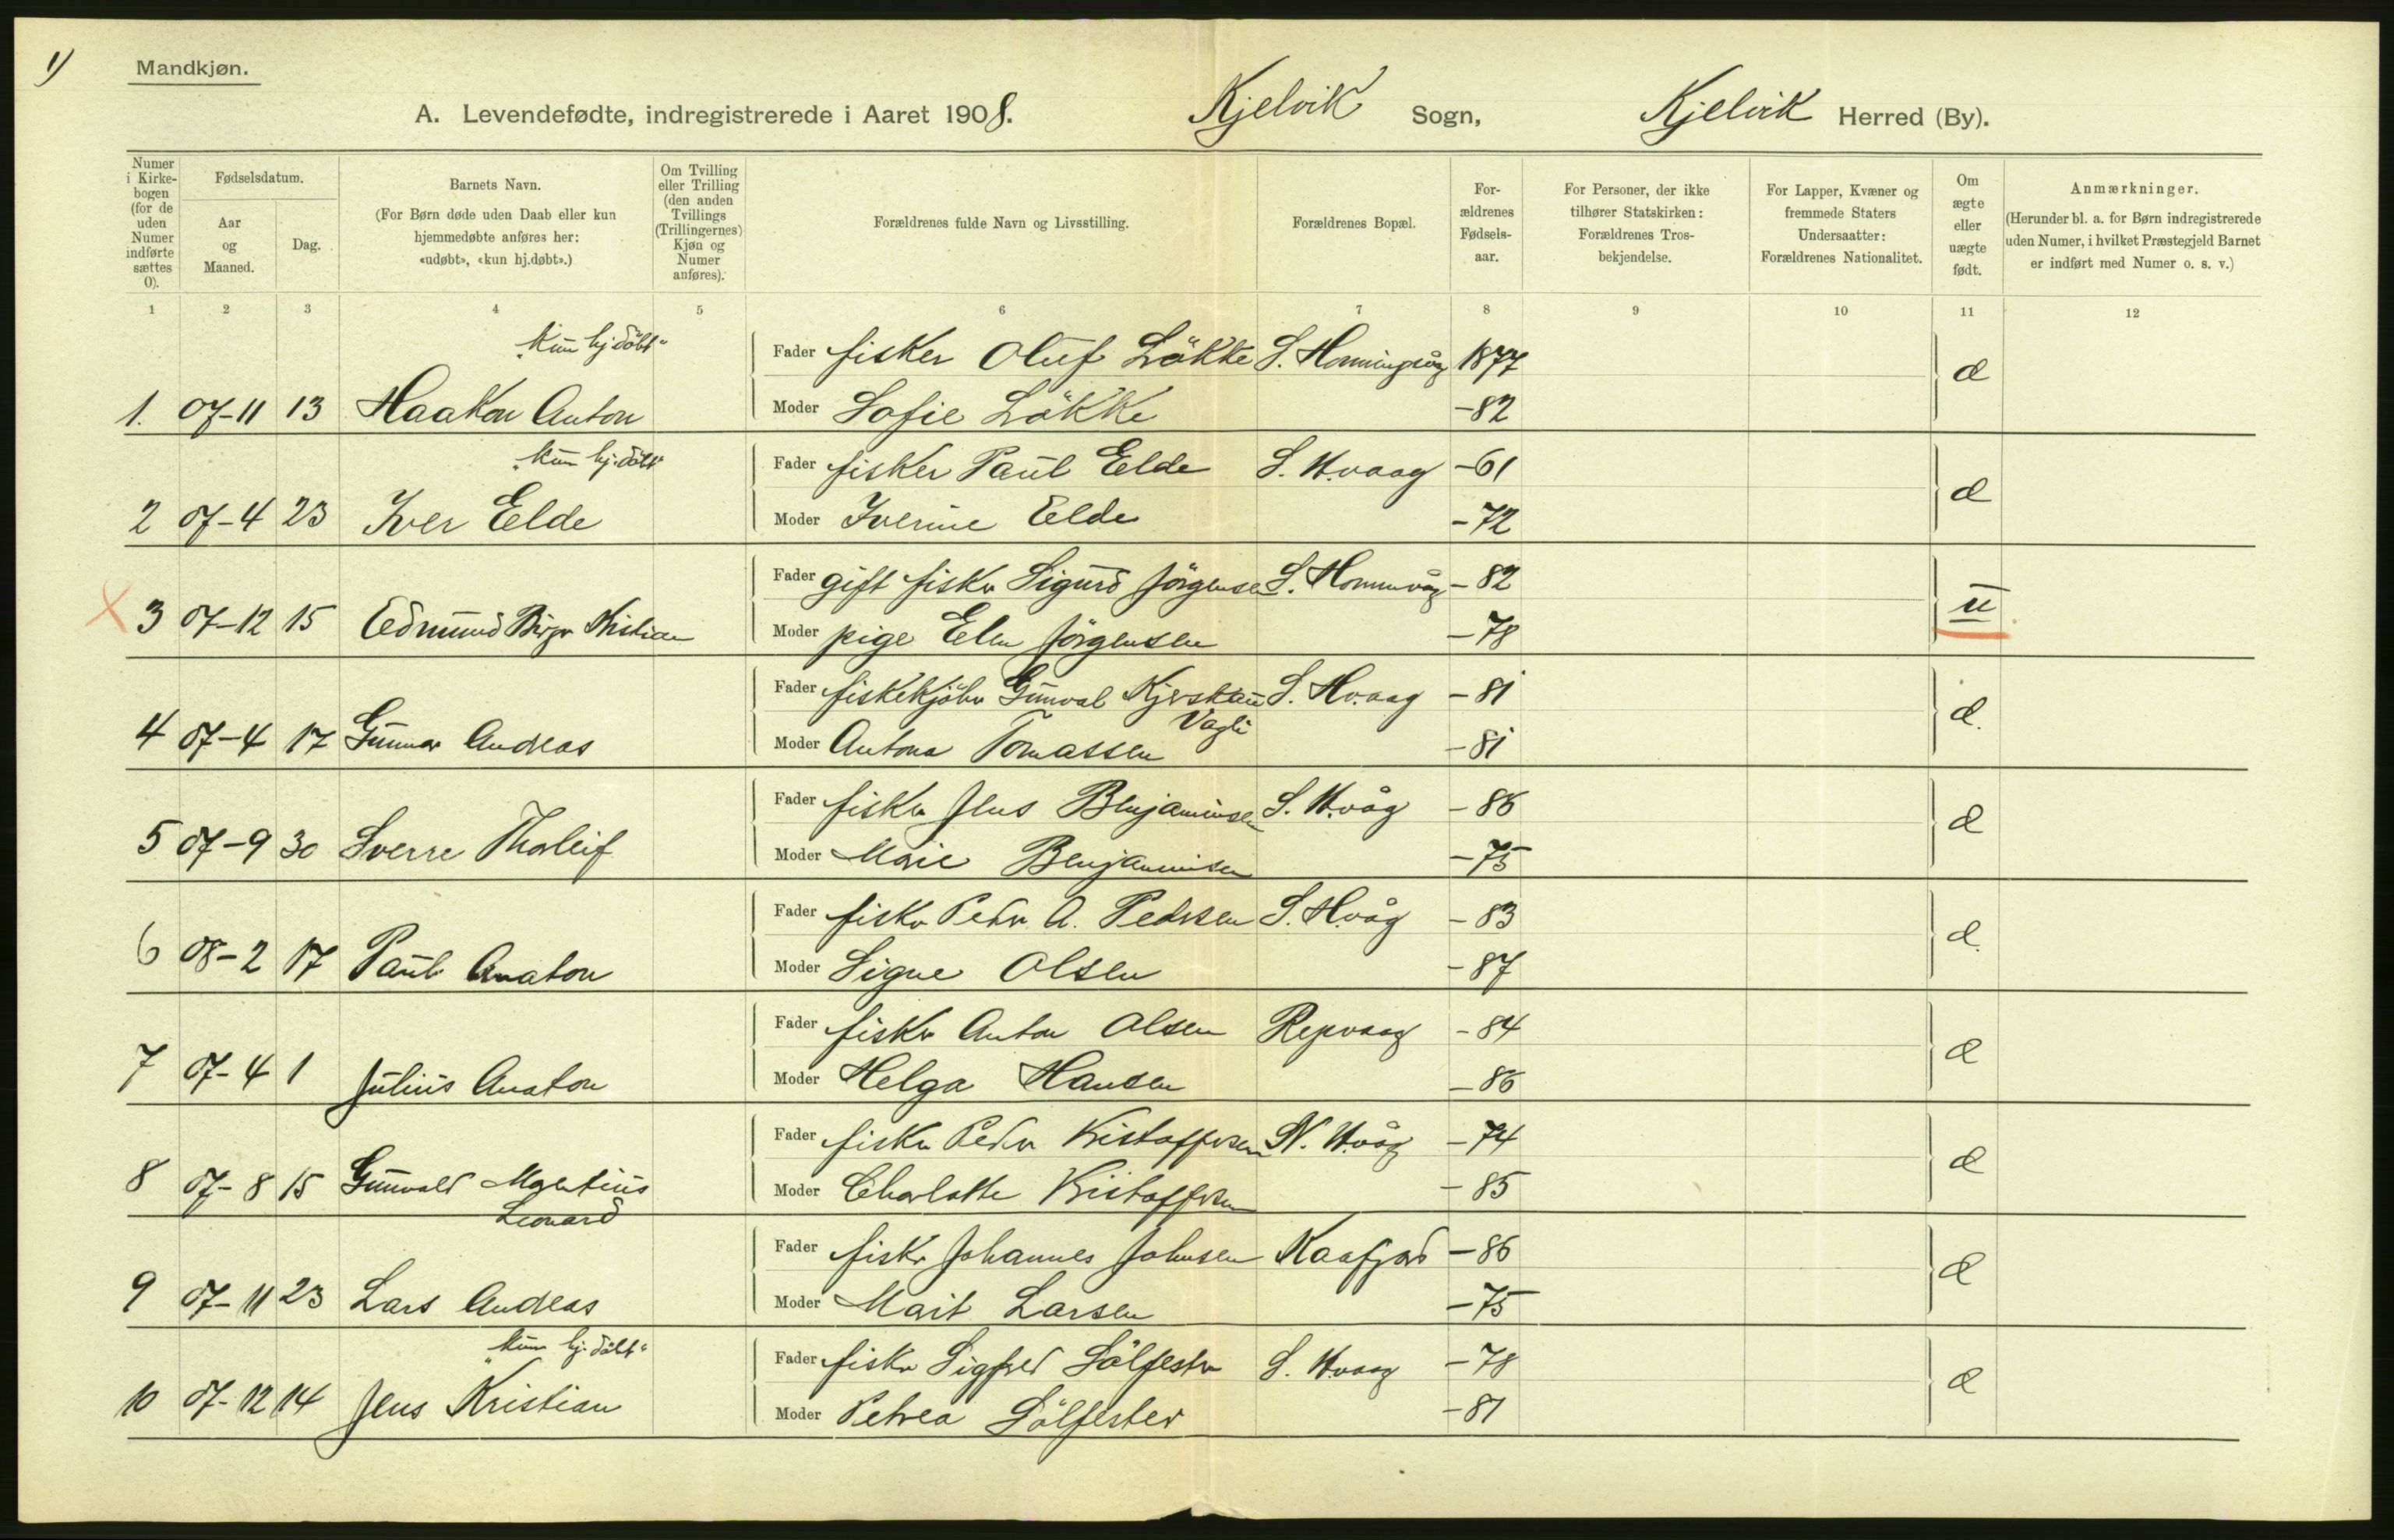 1)
Mandkjøn.
A. Levendefødte, indregistrerede i Aaret 1908. Kjelvik Sogn, Kjelvik Herred (By).
Numer i Kirkebogen (for de uden Numer indførte sættes 0).
Fødselsdatum.
Aar og Maaned.
Dag.
Barnets Navn.
(For Børn døde uden Daab eller kun hjemmedøbte anføres her: «udøbt», «kun hj.døbt».)
Om Tvilling eller Trilling (den anden Tvillings (Trillingernes) Kjøn og Numer anføres).
Forældrenes fulde Navn og Livsstilling.
Forældrenes Bopæl.
Forældrenes Fødselsaar.
For Personer, der ikke tilhører Statskirken: Forældrenes Trosbekjendelse.
For Lapper, Kvæner og fremmede Staters Undersaatter: Forældrenes Nationalitet.
Om ægte eller uægte født.
Anmærkninger.
(Herunder bl. a. for Børn indregistrerede uden Numer, i hvilket Præstegjeld Barnet er indført med Numer o. s. v.)
1 2 3 4 5 6 7 8 9 10 11 12
"Kun hj döbt"
Fader fisker Oluf Lökke S. Honningsvåg 1877
æ
1. 07-11 13 Haakon Anton Moder Sofie Lökke -82
"kun hj. döbt"
Fader fisker Paul Eelde S. H.vaag -61
æ
2 07-4 23 Iver Eelde Moder Iverine Eelde -72
Fader gift fisker Sigurd Jörgensen S. Honnvåg -82
u
3 07-12 15 Edmund Birger Kristian Moder pige Elen Jörgensen -78
Fader fiskekjöber Gunval Kjerstau S. Hvaag -81
Vagli
æ.
4 07-4 17 Gunnar Andreas Moder Antona Tomassen -81
Fader fisker Jens Benjaminsen S. H.våg -86
æ
5 07-9 30 Sverre Thorleif Moder Marie Benjaminsen -75
Fader fisker Peder A. Pedersen S. H.våg -83
æ.
6 08-2 17 Paul Anaton Moder Signe Olsen -87
Fader fisker Anton Olsen Repvaag -84
æ
7 07-4 1 Julius Anaton Moder Helga Hansen -86
Fader fisker Peder Kristoffersen N. H.våg -74
æ
8 07-8 15 Gunvald Martinus Moder Charlotte Kristoffersen -85
Leonard
Fader fisker Johannes Johnsen Kaafjord -86
æ
9 07-11 23 Lars Andreas Moder Marit Larsen -75
"kun hj. döbt"
Fader fisker Sigfred Sölfester S. H.vaag -78
æ
10 07-12 14 Jens Kristian Moder Petrea Sölfester -81